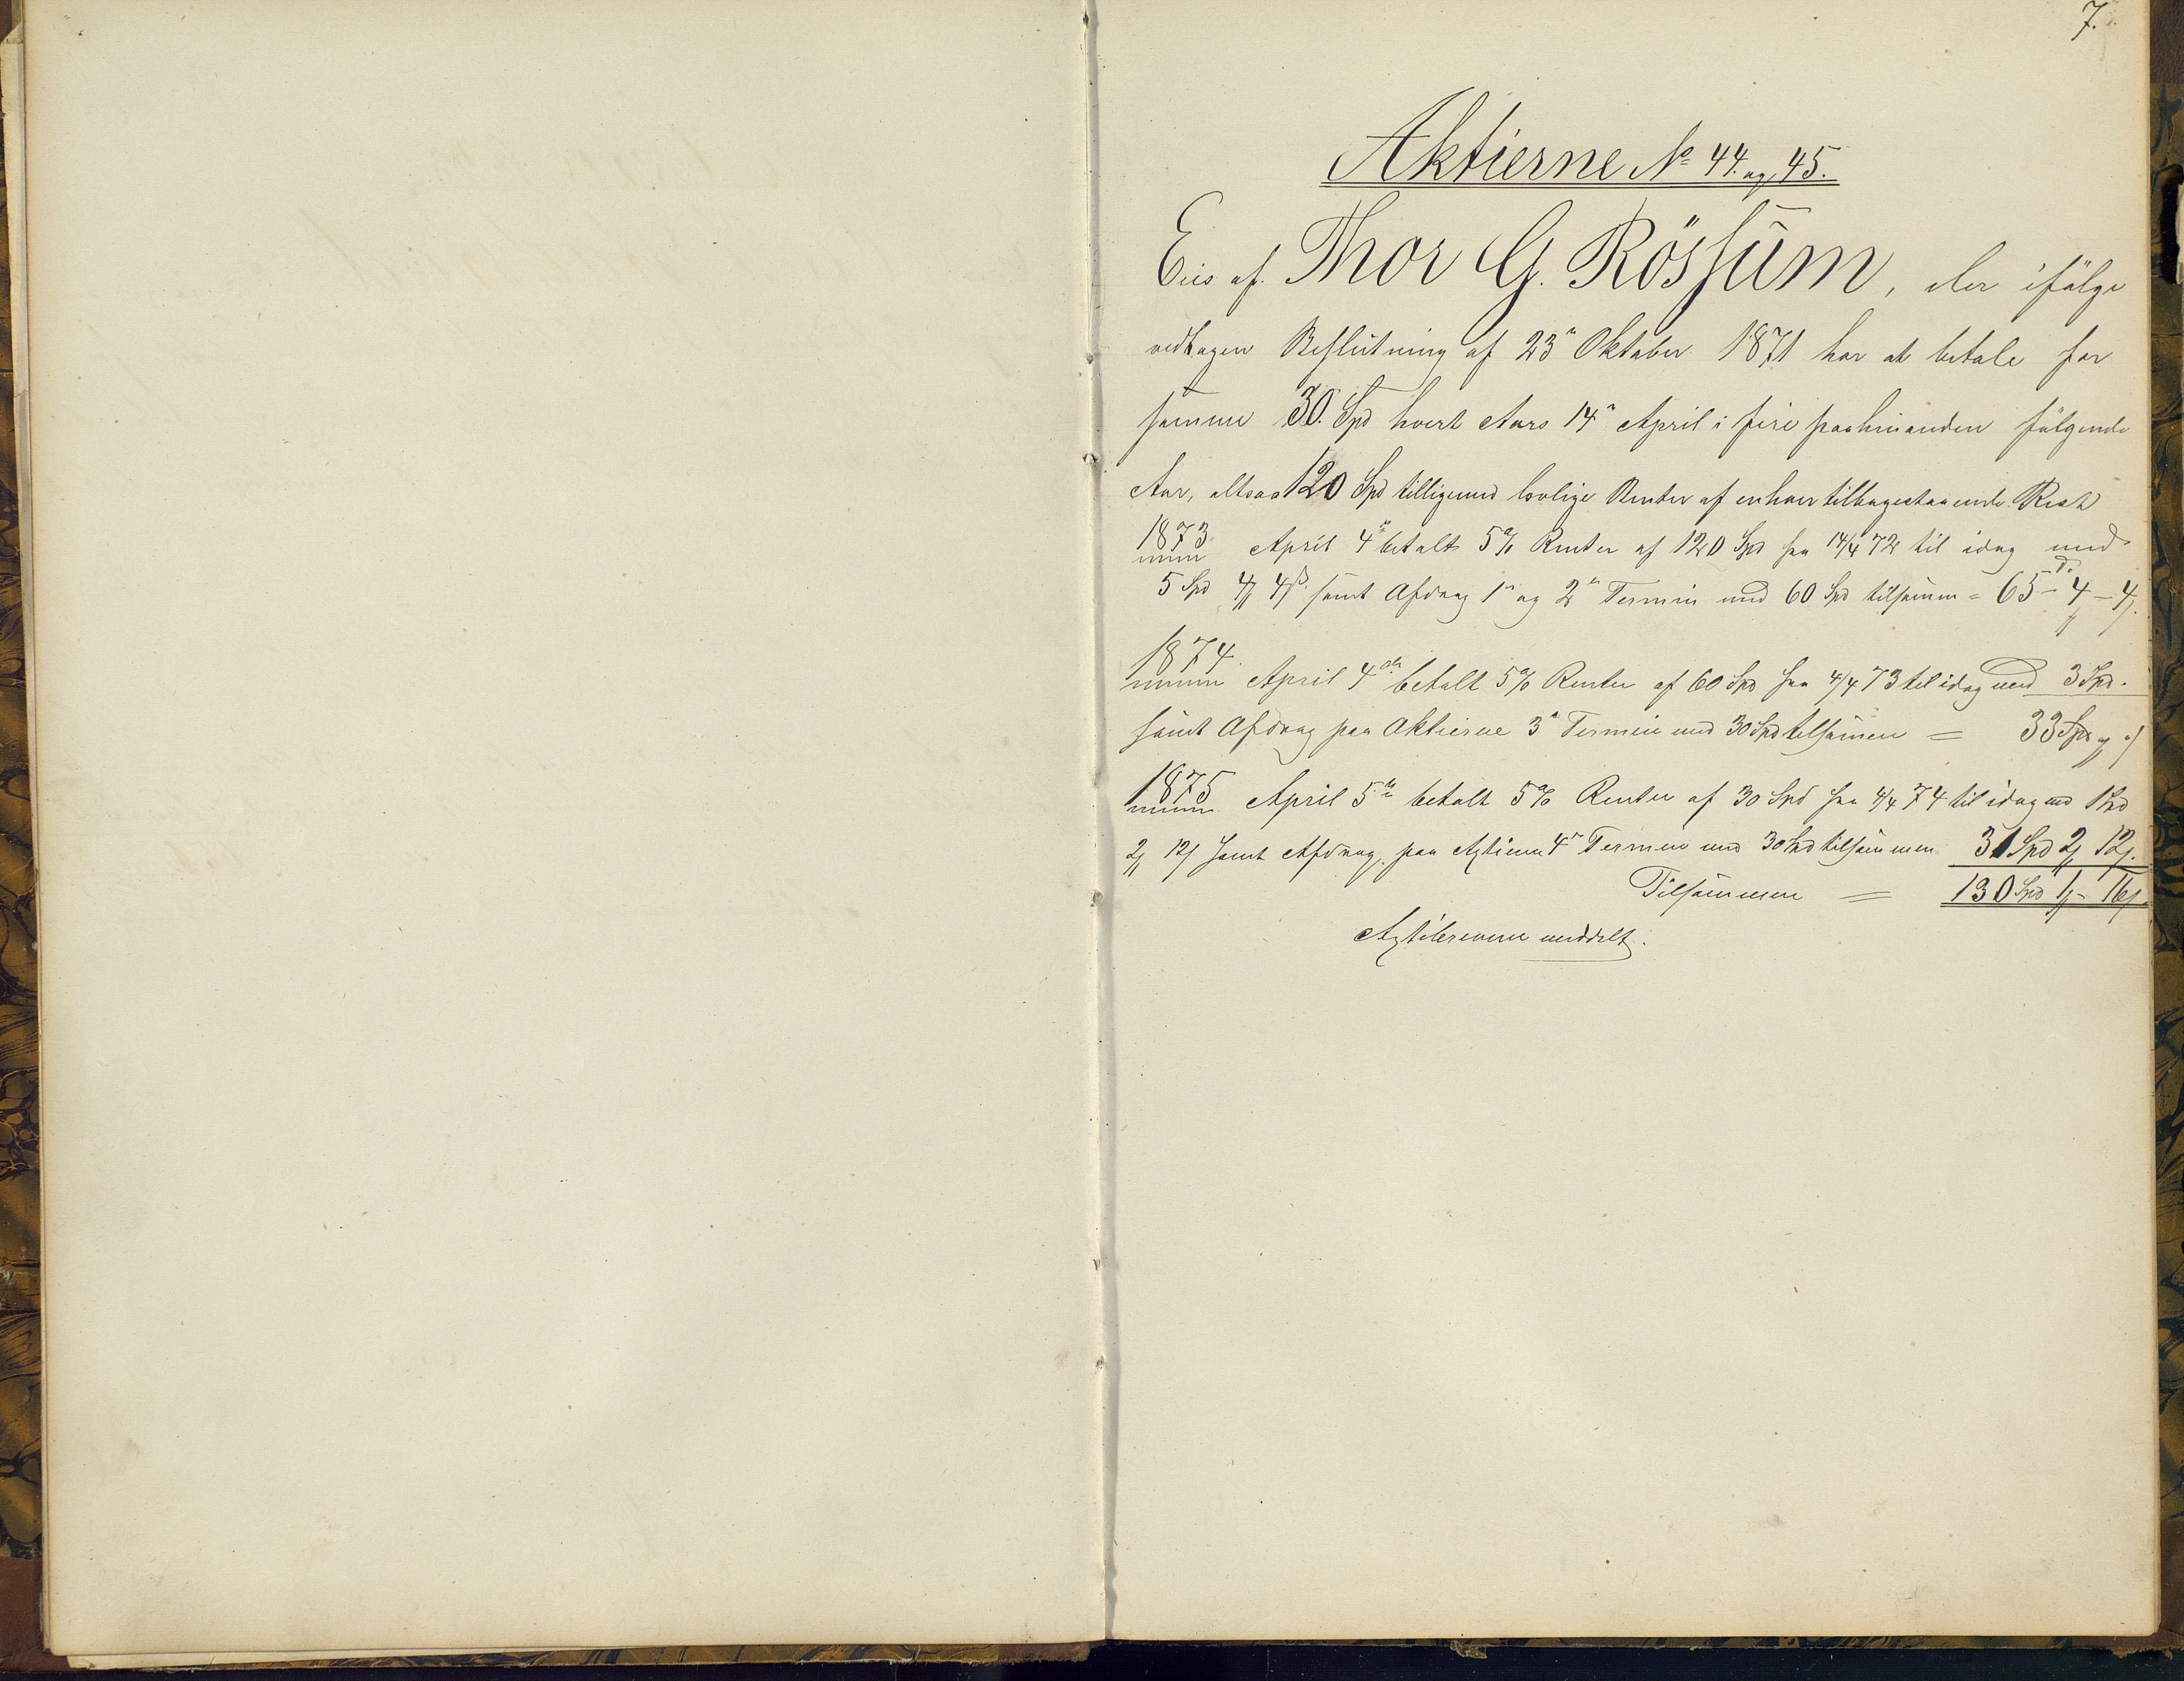 7.
Aktierne No 44. og 45.
Eies af Thor G. Rössum, der ifölge
vedtagen Beslutning af 23de Oktober 1871 har at betale for
samme 30. Spd hvert Aars 14de April i fire paahinanden fölgende
Aar, altsaa 120 Spd tilligemed lovlige Renter af enhver tilbagestaaende Rest
1873 April 4de betalt 5% Renter af 120 Spd fra 14/4 72 til idag med
5 Spd 4 4 samt Afdrag 1ste og 2den Termin med 60 Spd tilsamm = 65 - 4 - 4
1874. April 4de betalt 5% Renter af 60 Spd fra 4/4 73 til idag med 3 Spd.
samt Afdrag paa Aktierne 3die Termin med 30 Spd tilsammen = 33 Spd
1875 April 5te betalt 5% Renter af 30 Spd fra 4/4 74 til idag med 1 Spd
2 12 samt Afdrag paa Agtierne 4de Termin med 30 Spd tilsammen 31 Spd 2 12
Tilsammen = 130 Spd 1 - 16
meddelt.